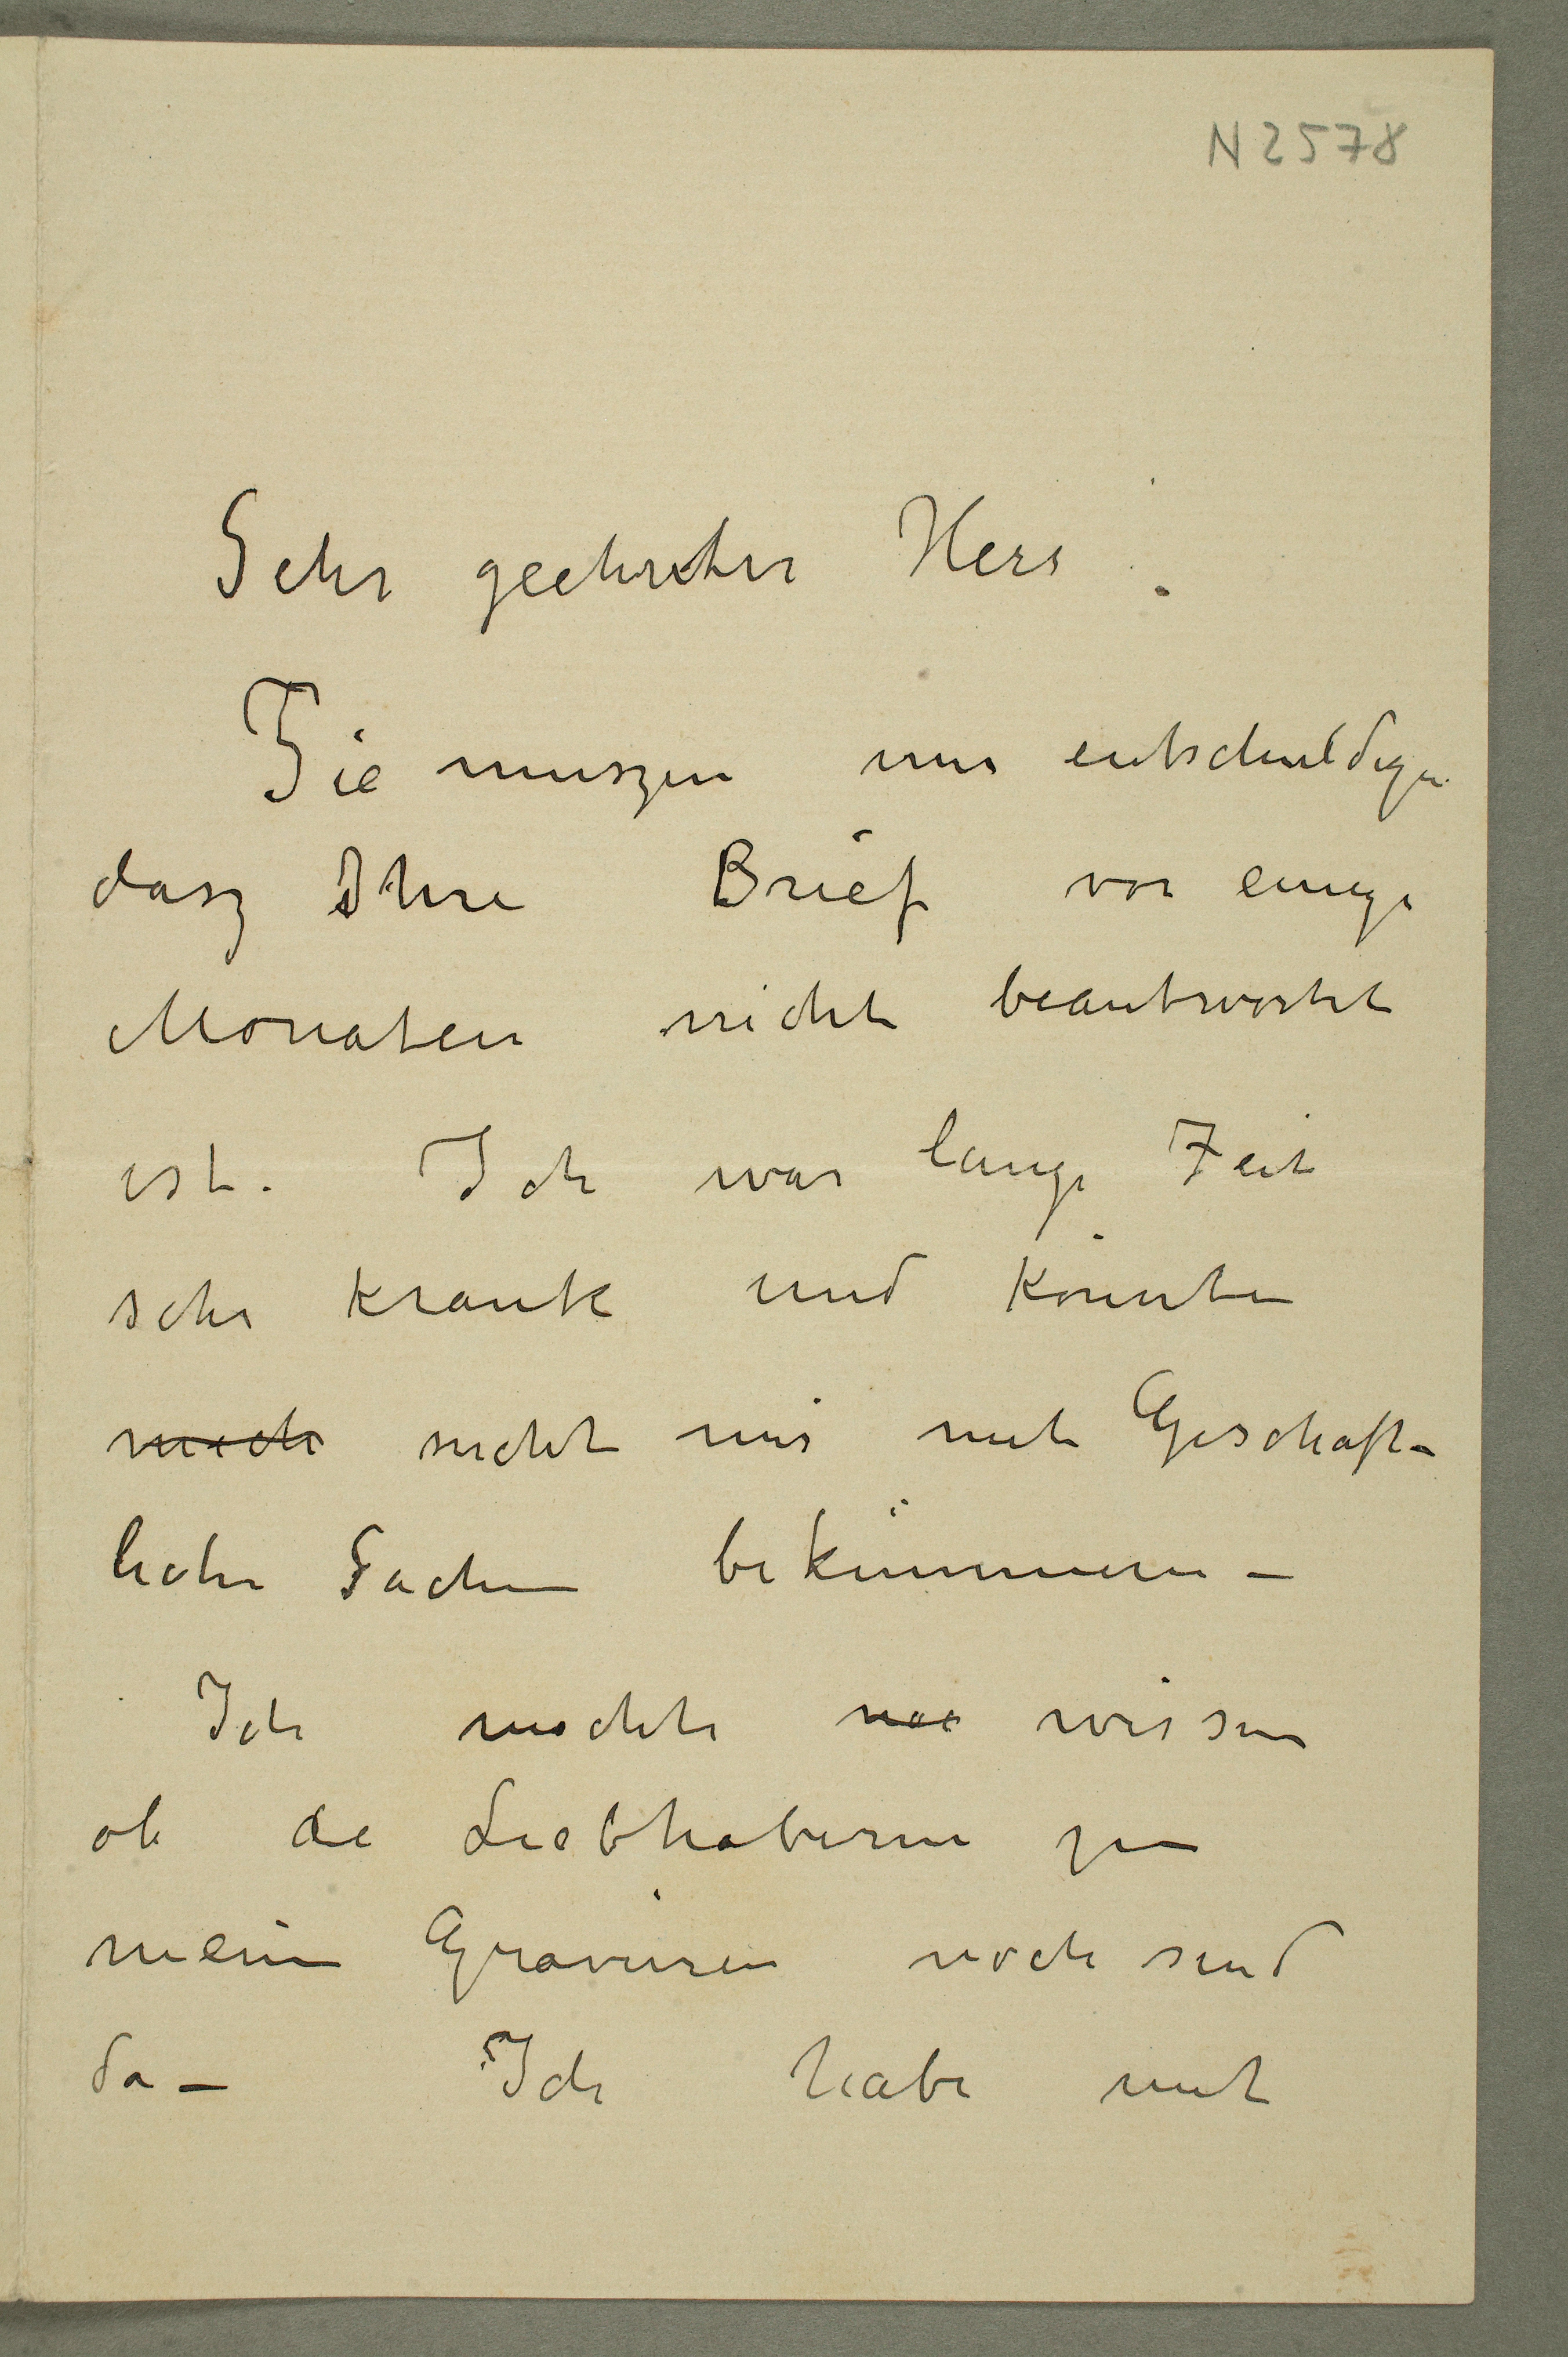 N 2578
Sehr geehrter Herr!
Sie muszen mir entschuldigen
dasz Ihre Brief vor einige
Monaten nicht beantwortet
ist. Ich war lange Zeit
sehr krank und konnte
mich nicht mir mit Geschäft-
licher Sachen bekümmern –
Ich mochte wissen
ob die Liebhaberen zu
meinen Gravüren noch sind
da – Ich habe mit